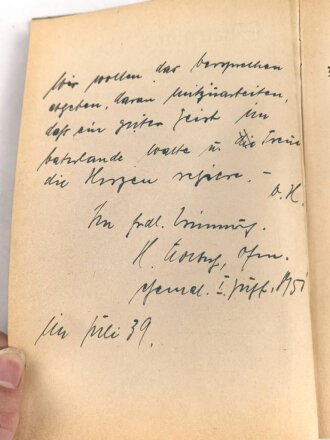 Wir wollen das Versprechen
abgeben, daran mitzuarbeiten,
daß ein guter Geist im
Vaterlande walte u. die Treue
die Herzen regiere. –
A. H.
Zur frdl. Erinnerung.
H.
Im Juli 39.